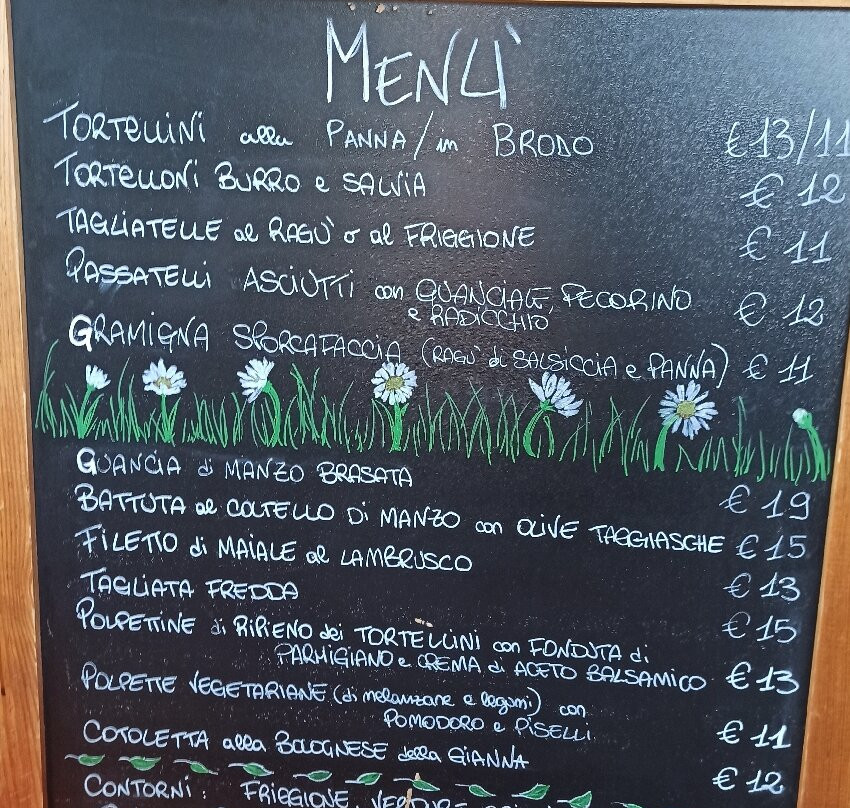 MENÙ
TORTELLINI alla PANNA/in BRODO €13/11
TORTELLONI BURRO e SALVIA € 12
TAGLIATELLE al RAGÙ o al FRIGGIONE € 11
PASSATELLI ASCIUTTI con GUANCIALE, PECORINO € 12
e RADICCHIO
GRAMIGNA SPORCAFACCIA (RAGÙ di SALSICCIA e PANNA) € 11
GUANCIA di MANZO BRASATA € 19
BATTUTA al COLTELLO DI MANZO con OLIVE TAGGIASCHE € 15
FILETTO di MAIALE al LAMBRUSCO € 13
TAGLIATA FREDDA € 15
POLPETINE di RIPIENO dei TORTELLINI con FONDUTA di
PARMIGIANO e CREMA di ACETO BALSAMICO € 13
POLPETTE VEGETARIANE (di melanzane e legumi) con
POMODORO e PISELLI € 11
COTOLETTA alla BOLOGNESE della GIANNA € 12
CONTORNI: FRIGGIONE,